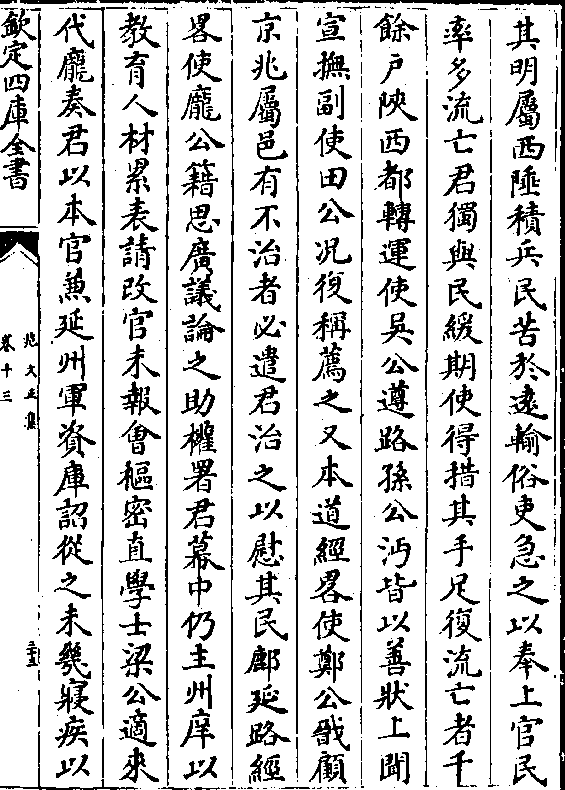 其明屬西陲積兵民苦於逺輸俗吏急之以奉上官民
率多流亡君獨與民緩期使得措其手足復流亡者千
餘户陜西都轉運使吳公遵路孫公沔皆以善狀上聞
宣撫副使田公况復稱薦之又本道經畧使鄭公戩顧
京兆屬邑有不治者必遣君治之以慰其民鄜延路經
畧使龎公籍思廣議論之助權署君幕中仍主州庠以
教育人材累表請改官未報會樞密直學士梁公適來
代龎奏君以本官兼延州軍資庫詔從之未幾寢疾以
欽定四庫全書
范文正集
卷十三